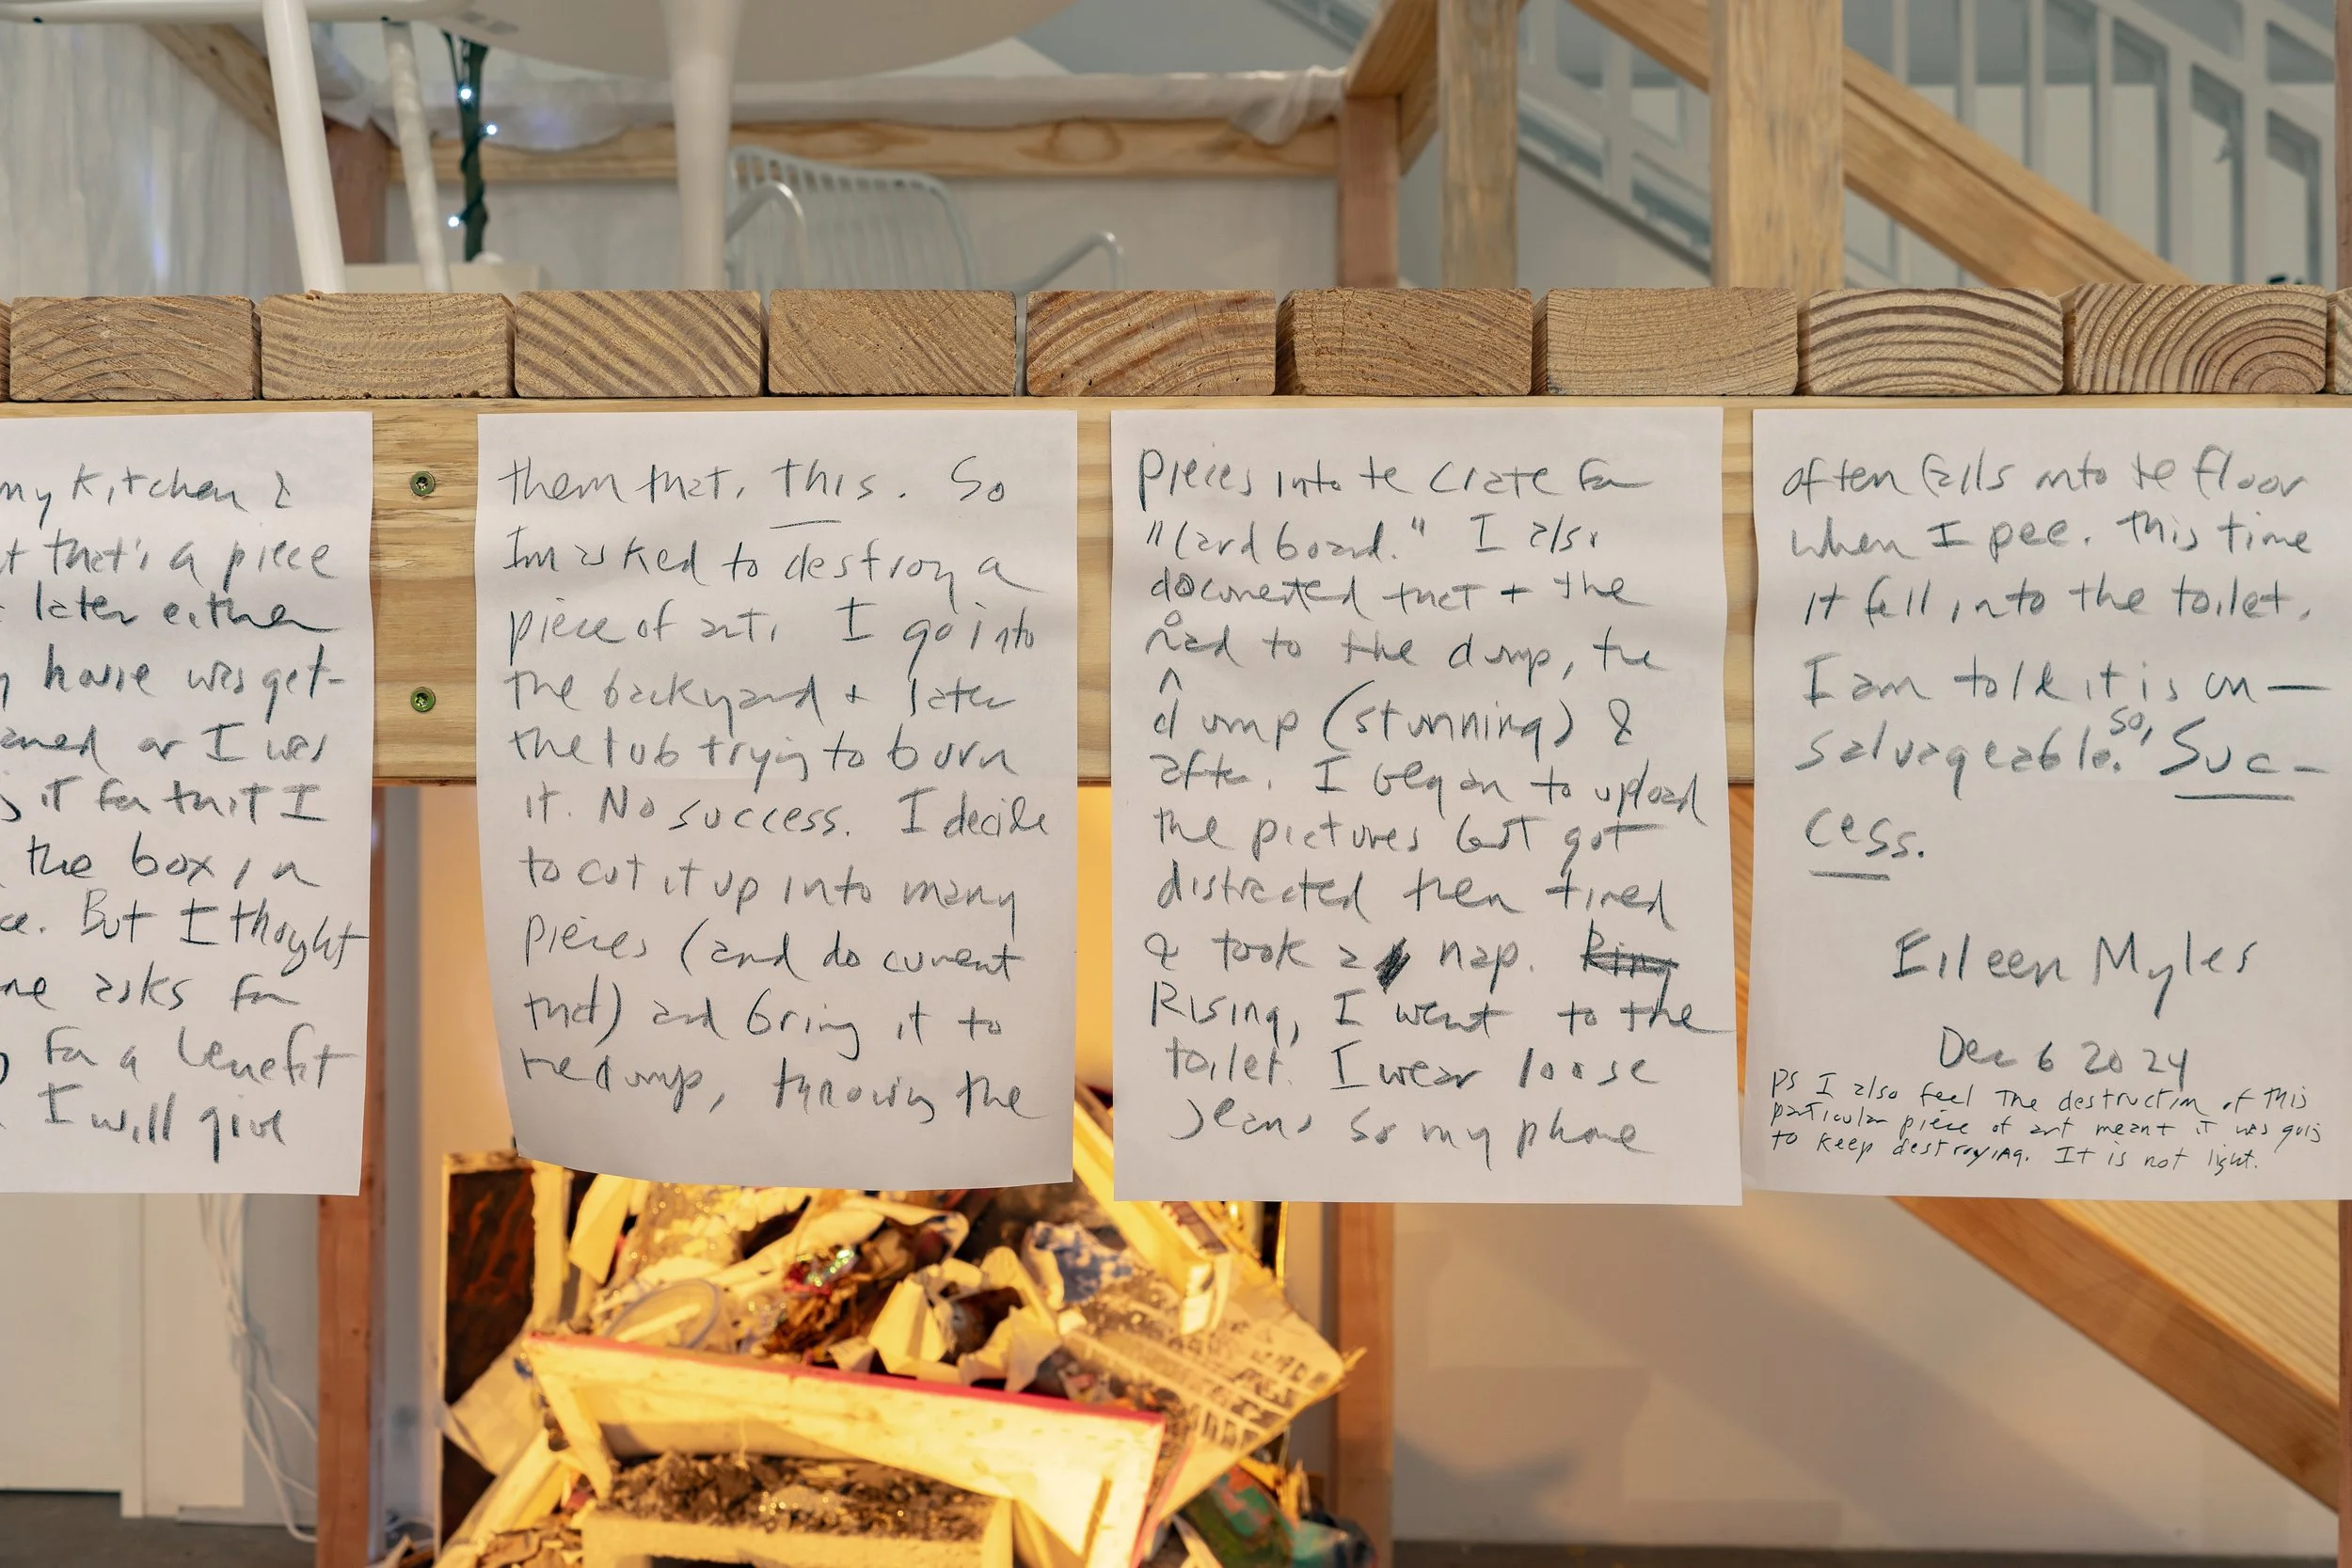 my kitchen &
that's a piece
later either
house was get-
or I was
it for that I
the box, in
But I thought
asks for
for a benefit
I will give
them that, this. So
Im asked to destroy a
piece of art. I go into
the backyard + later
the tub trying to burn
it. No success. I decide
to cut it up into many
pieces (and document
that) and bring it to
the dump, throwing the
pieces into the crate for
"Cardboard." I also
documented that + the
road to the dump, the
dump (stunning) &
after. I began to upload
the pictures but got
distracted then tired
& took a nap. Ring
Rising, I went to the
toilet. I wear loose
jeans so my phone
often falls onto the floor
when I pee. This time
it fell into the toilet.
I am told it is un-
salvageable. so, Suc-
cess.
Eileen Myles
Dec 6 2024
PS I also feel the destruction of this
particular piece of art meant it was going
to keep destroying. It is not light.